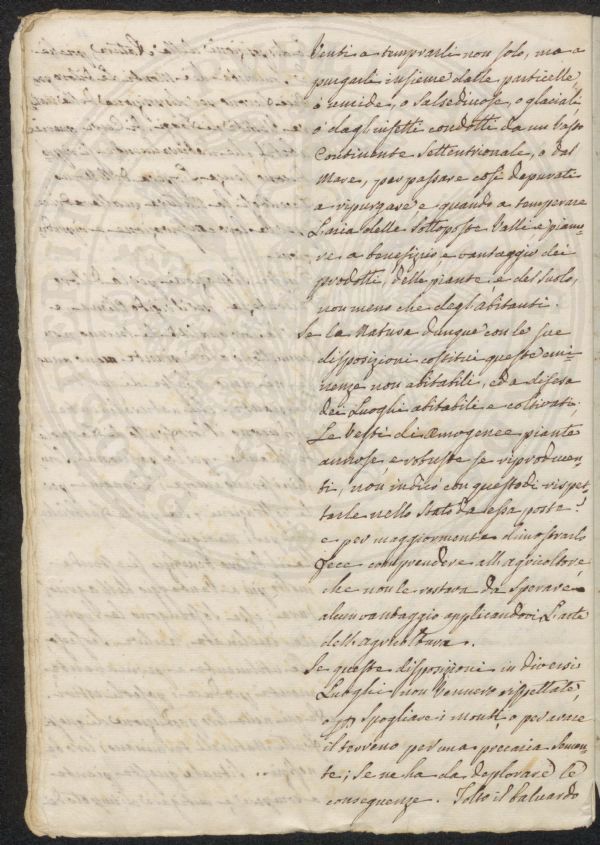 Venti a temprarli non solo, ma a
purgarli insieme dalle particelle,
o umide, o salsedinose, o glaciali
o dagl'insetti condotti da un vasto
Continente Settentrionale, o dal
Mare, per passare così depurati
a ripurgare, e quando a temperare
L'aria delle sottoposte Valli e pianu=
re a benefizio, e vantaggio dei
prodotti, delle piante, e del suolo,
non meno che degl'abitanti.
Se la Natura dunque con le sue
disposizioni costituì queste emi=
nenze non abitabili, ed a difesa
dei Luoghi abitabili e coltivati.
Le vestì di omogenee piante
annose, e robuste se riproducen=
ti, non indicò con questo di rispet=
tarle nello stato da essa poste?
e per maggiormente dimostrarlo
fece comprendere all'agricoltore,
che non le restava da sperare
alcun vantaggio applicandovi L'arte
dell'agricoltura.
Se queste disposizioni in diversi
Luoghi non vennero rispettate,
o per spogliare i monti, o per avere
il terreno per una precaria semen=
te; se ne ha da deplorare le
conseguenze. Tolto il baluardo